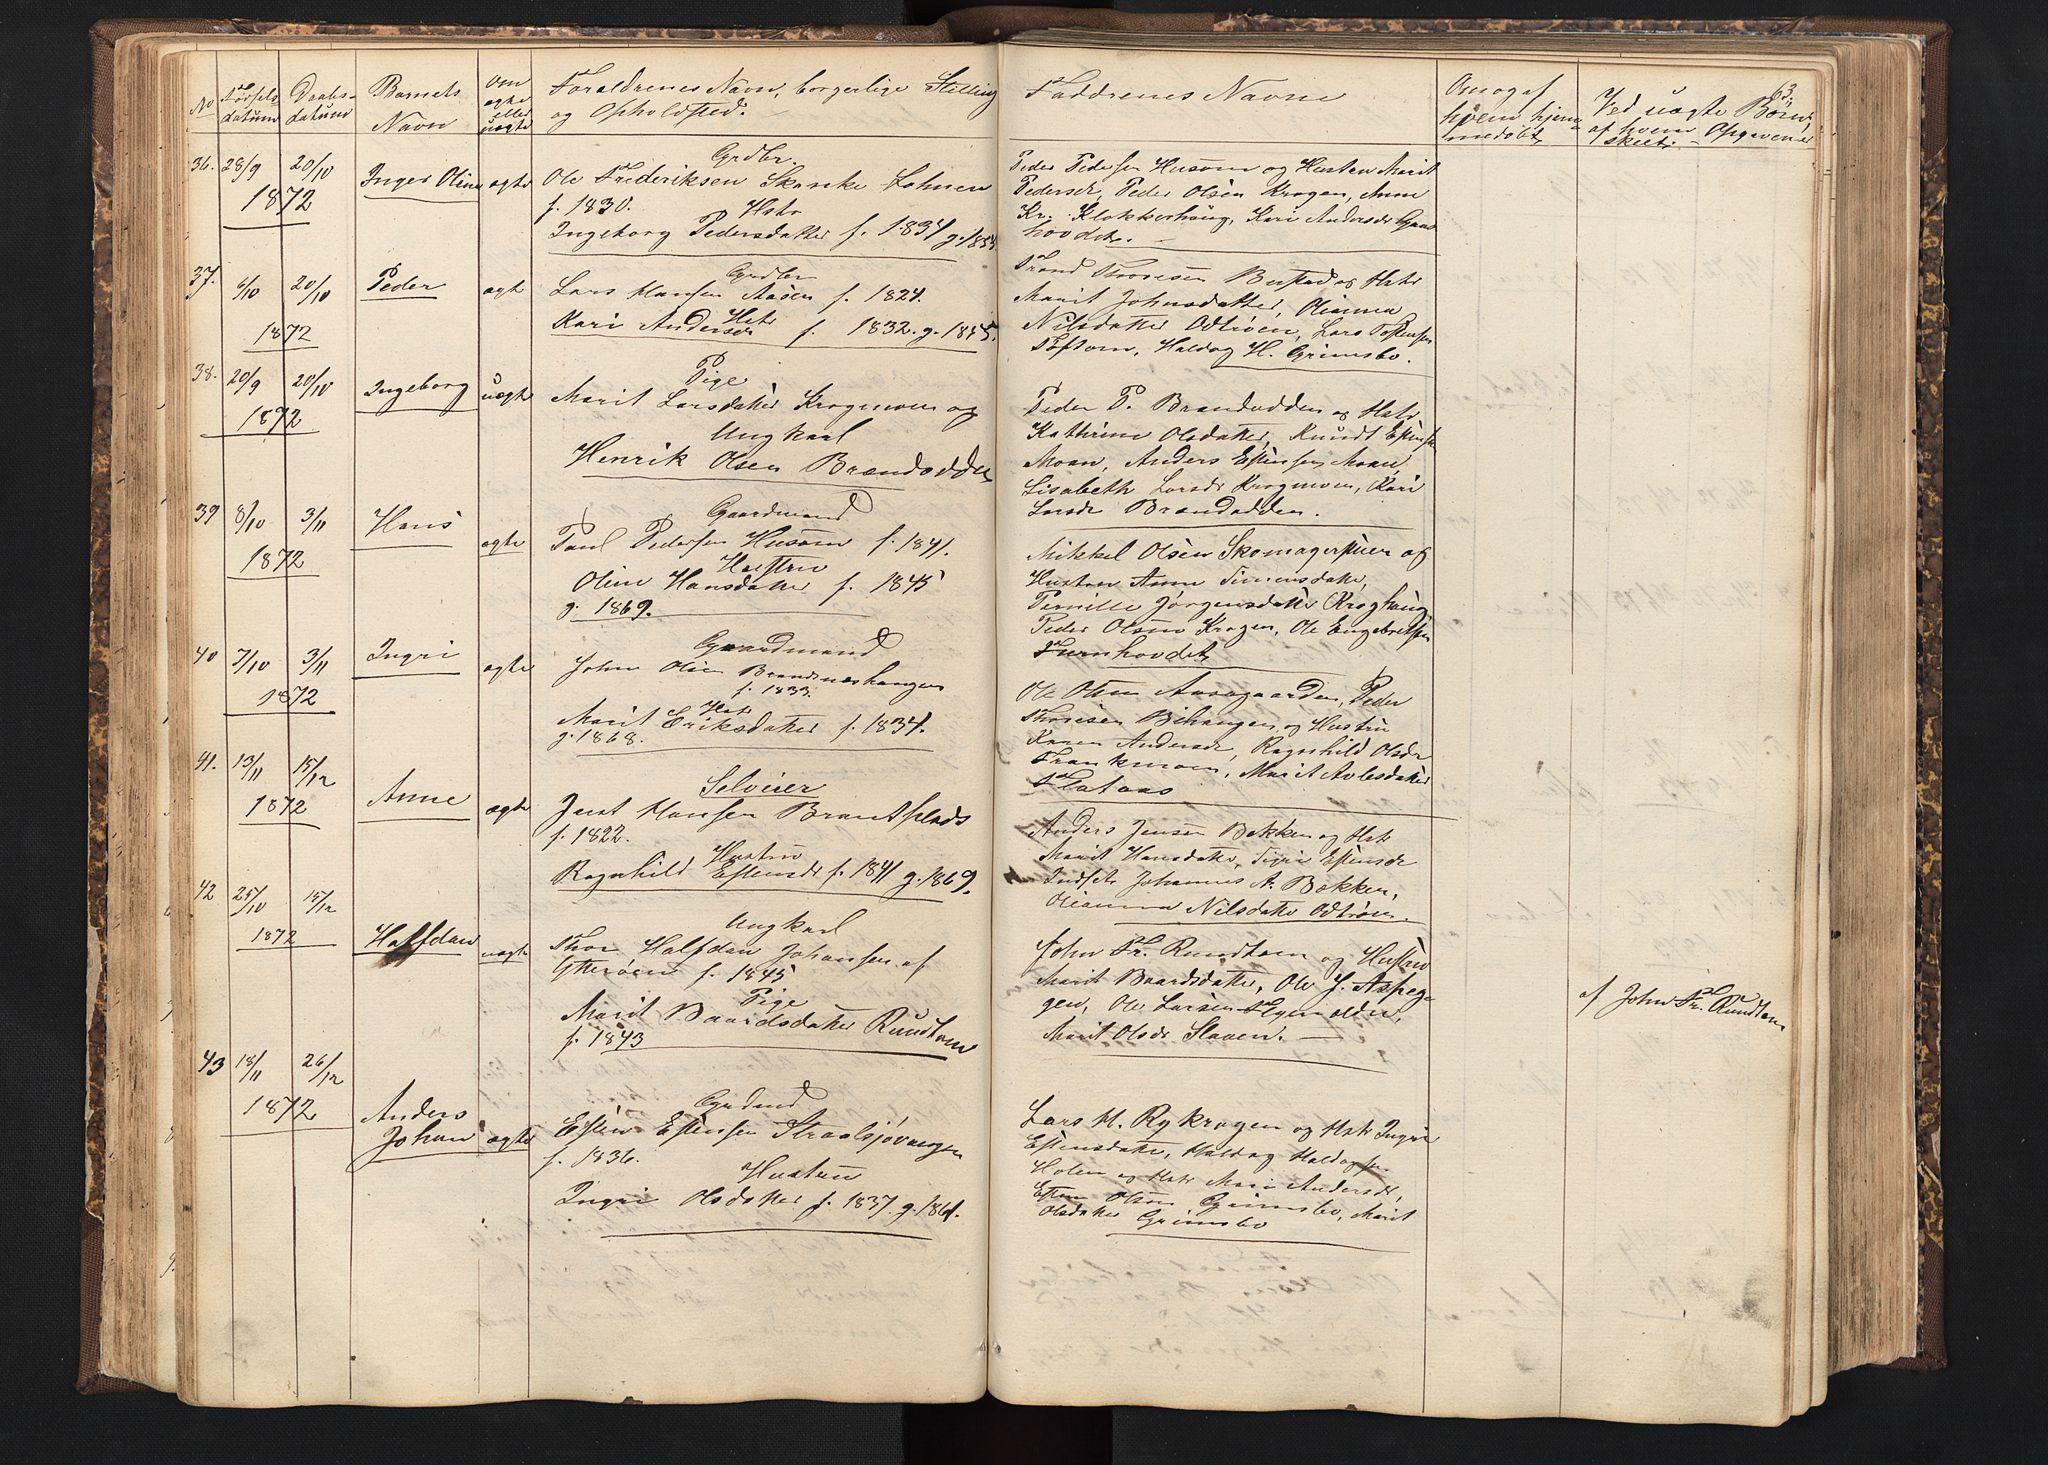 63.
No Fødsels Datum Daabs Datum Barnets Navn Om ægte eller uægte Forældrenes Navn, borgerlige Stilling og Opholdsted. Faddrenes Navne Om og af hvem hjemmedøbt Ved uægte Børn, af hvem Opgaven er skeet.
36. 28/9 20/10 1872 Inger Oline ægte
Grdbr.
Ole Frederiksen Skanke
f. 1830. Hstr
Ingeborg Pedersdatter f. 1834 g.
Peder Pedersen Husom og Hustru Marit
Pedersdr, Peder Olsen Krogen, Anne
Kr. Klokkerhaug, Kari Andersdr
37. 6/10 20/10 1872 Peder ægte
Grdbr
Lars Hansen Aasen f. 1824.
Hstr
Kari Andersdr f. 1832. g. 1855.
Trond Thoresen og Hstr
Marit Johnsdatter, Oleanna
Nilsdatter Odtrøen, Lars
Toftom, Haldog H. Grimsbo.
38. 20/9 20/10 1872 Ingeborg uægte
Pige
Marit Larsdatter Krogmoen og
Ungkarl
Henrik Olsen Brandodden
Peder P. Brandodden og Hstr
Kathrine Olsdatter, Knudt Estensen
Moan, Anders Estensen Moan,
Lisabeth Larsdr Krogmoen, Kari
Larsdr Brandodden.
39 8/10 3/11 1872 Hans ægte
Gaardmand
Paul Pedersen Husom f. 1841.
Hustru
Oline Hansdatter f. 1845
g. 1869.
Mikkel Olsen og
Hustru Anne Simensdatter,
Pernille Jørgensdatter Kroghaug
Peder Olsen Krogen, Ole Engebretsen
Furuhovdet
40 7/10 3/11 1872 Ingri ægte
Gaardmand
John Olsen Brandneshaugen
f. 1833.
Hst
Marit Eriksdatter f. 1834.
g. 1868.
Ole Olsen Aasgaarden, Peder
Thoresen Bihaugen og Hustru
Karen Andersdr, Ragnhild Olsdr
Frankmoen, Marit
Flataas
41. 13/11 15/12 1872 Anne ægte
Selveier
Hansen
f. 1822.
Hustru
Ragnhild Estensdr f. 1841 g. 1869.
Anders Jensen Bakken og Hstr
Marit Hansdatter, Sigri Estensdr
Indset, Johannes A. Bakken,
Oleanna Nilsdatter Odtrøen.
42 25/10 15/12 1872 Halfdan uægte
Ungkarl
Thor Halfdan Johansen af
Ytterøen f. 1845
Pige
Marit Baardsdatter Rundtom
f. 1843
John Fr. Rundtom og Hustru
Marit Baardsdatter, Ole J. Aspeg-
gen, Ole Larsen
Marit Olsdr Slaaen.
af John Fr. Rundtom
43 18/11 26/12 1872 Anders Johan ægte
Grdmd
Esten Estensen Straalsjøvangen
f. 1836.
Hustru
Ingri Olsdatter f. 1837. g. 1861.
Lars M. Rykrogen og Hstr Ingri
Estensdatter, Haldog Haldogsen
Holen og Hstr Mari Andersdr,
Esten Olsen Grimsbo, Marit
Olsdatter Grimsbo